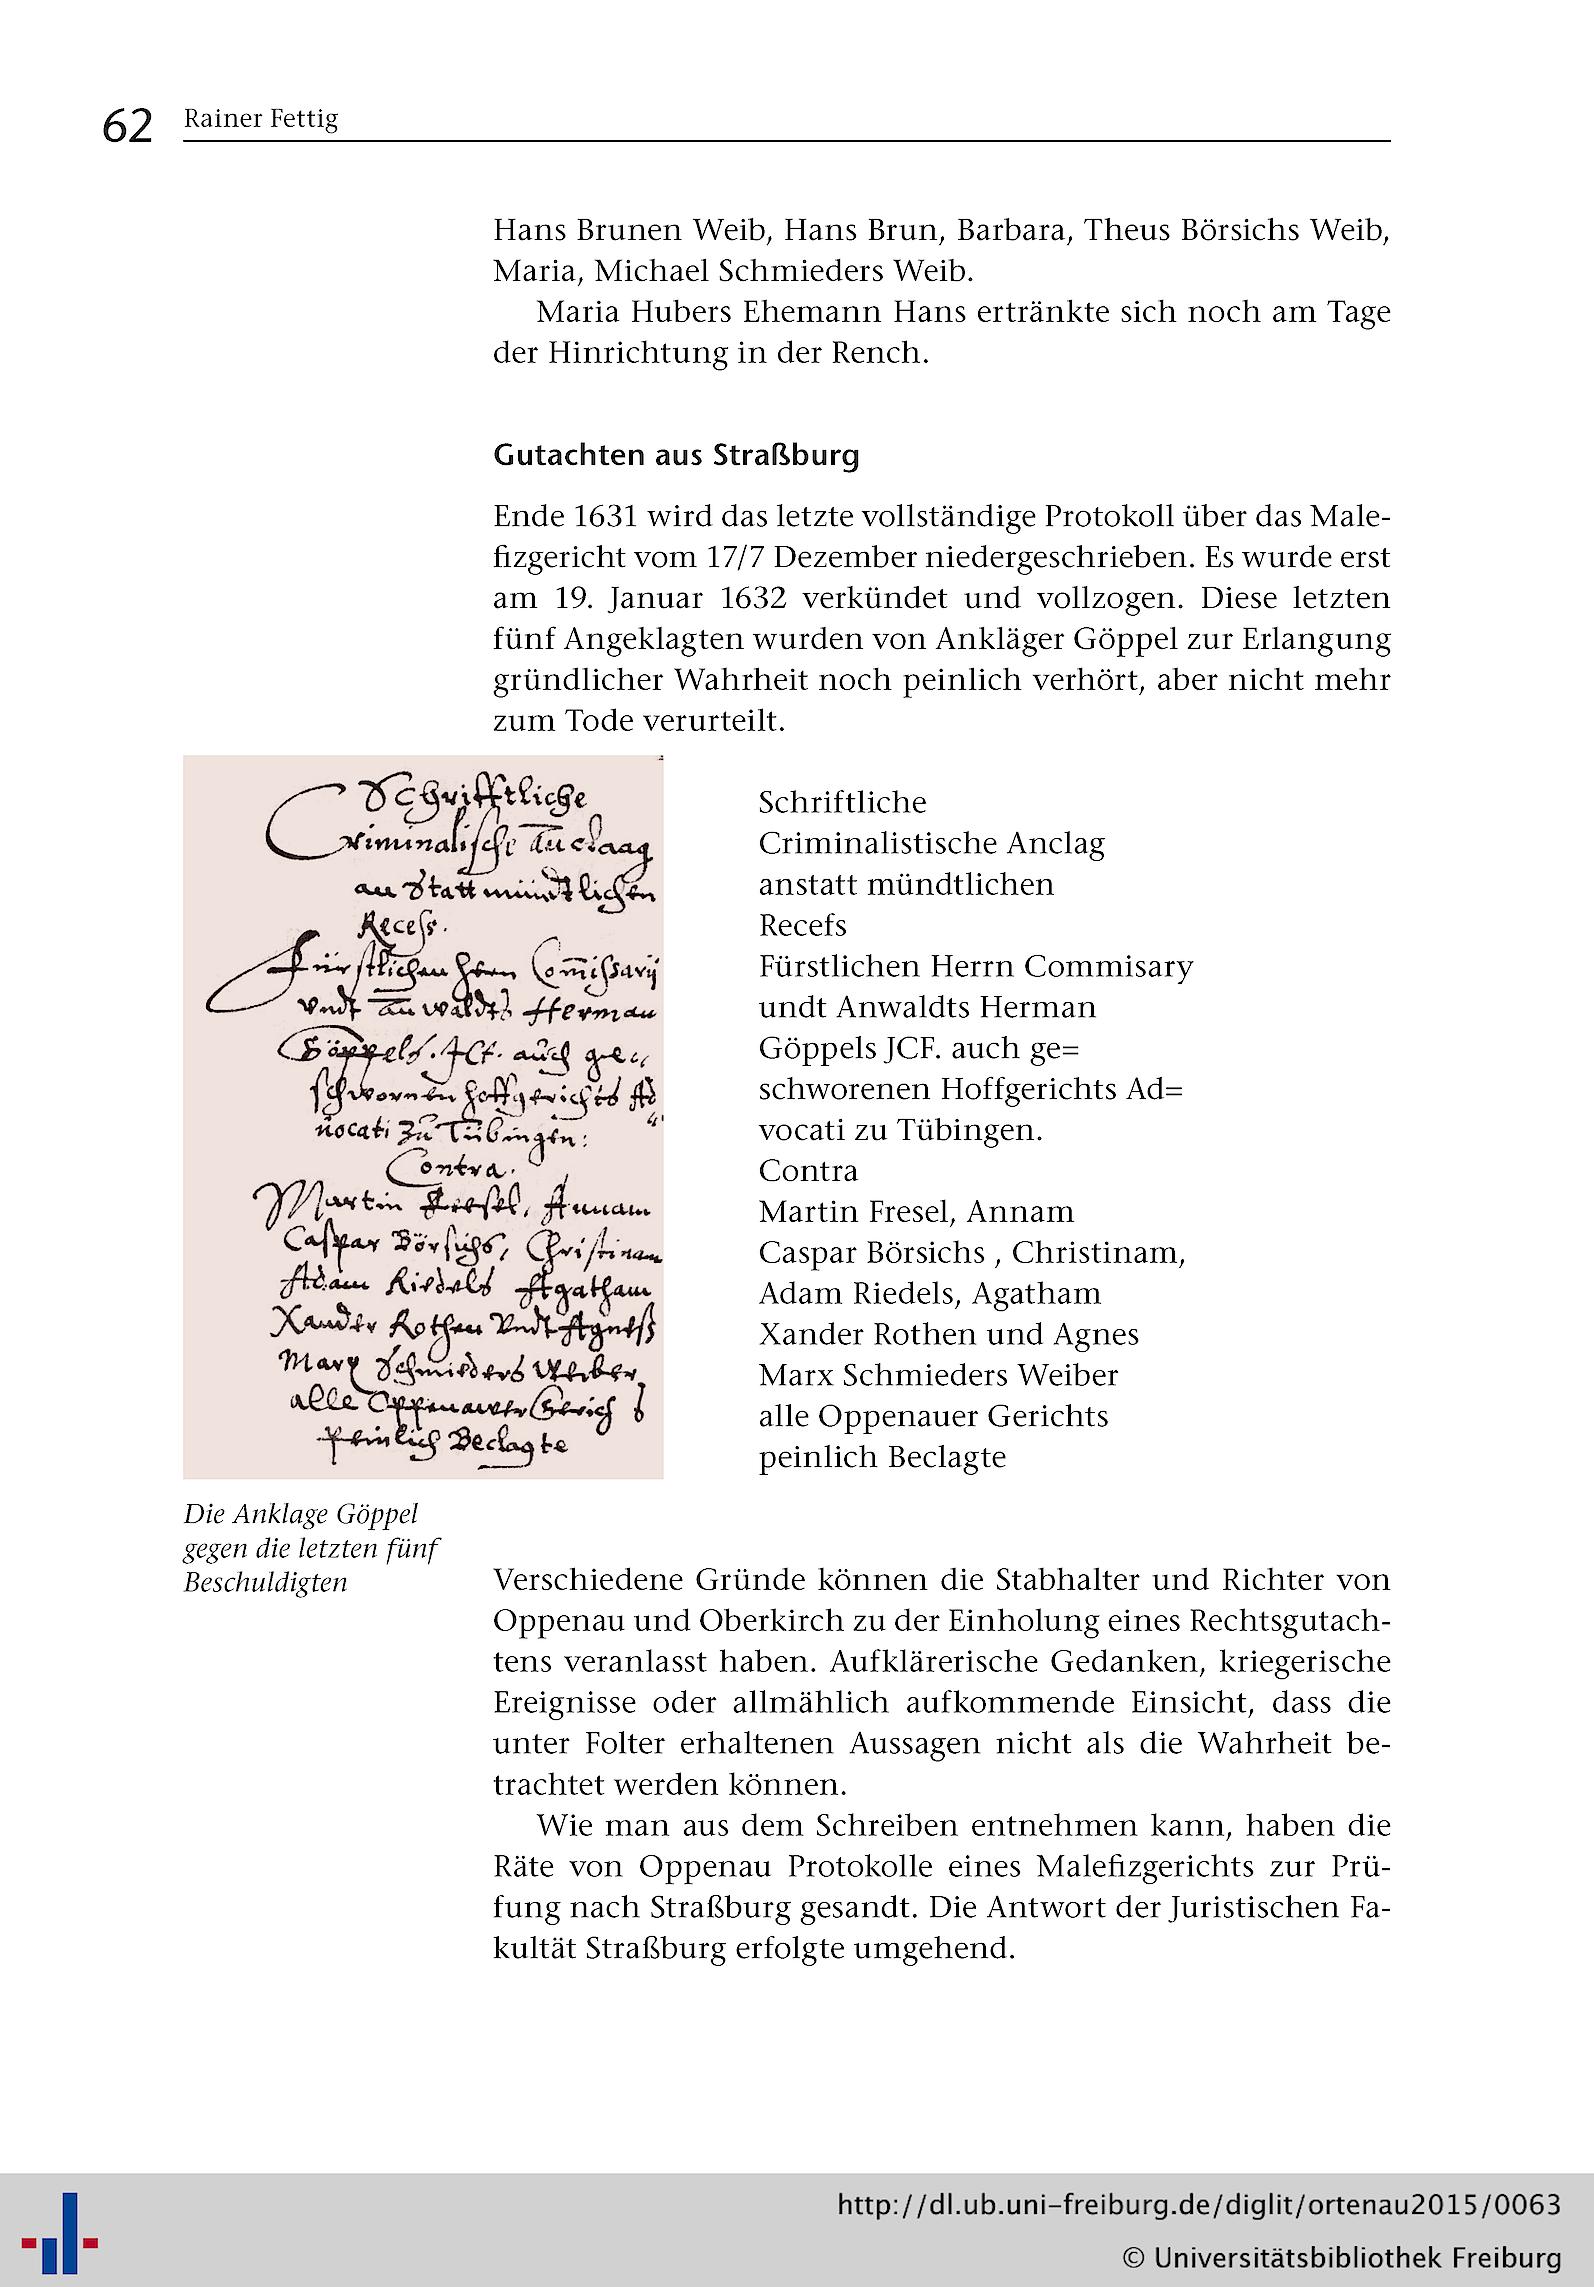 62 Rainer Fettig
Hans Brunen Weib, Hans Brun, Barbara, Theus Börsichs Weib,
Maria, Michael Schmieders Weib.
Maria Hubers Ehemann Hans ertränkte sich noch am Tage
der Hinrichtung in der Rench.
Gutachten aus Straßburg
Ende 1631 wird das letzte vollständige Protokoll über das Male-
fizgericht vom 17/7 Dezember niedergeschrieben. Es wurde erst
am 19. Januar 1632 verkündet und vollzogen. Diese letzten
fünf Angeklagten wurden von Ankläger Göppel zur Erlangung
gründlicher Wahrheit noch peinlich verhört, aber nicht mehr
zum Tode verurteilt.
Schrifftliche
Criminalische Anclaag
an Statt mündtlichen
Recess.
Fürstlichen Herrn Commissarij
Vndt Anwaldts Herman
Göppels. JCt. auch ge„
schwornen Hoffgerichts Ad
uocati Zu Tübingen:
Contra.
Martin Fresel, Annam
Caspar Börsichs, Christinam
Adam Riedels Agatham
Xander Rothen Vndt Agneß
Marx Schmieders Weiber
alle Oppenawer Gerichts
Peinlich Beclagte
Schriftliche
Criminalistische Anclag
anstatt mündtlichen
Recefs
Fürstlichen Herrn Commisary
undt Anwaldts Herman
Göppels JCF. auch ge=
schworenen Hoffgerichts Ad=
vocati zu Tübingen.
Contra
Martin Fresel, Annam
Caspar Börsichs , Christinam,
Adam Riedels, Agatham
Xander Rothen und Agnes
Marx Schmieders Weiber
alle Oppenauer Gerichts
peinlich Beclagte
Die Anklage Göppel
gegen die letzten fünf
Beschuldigten
Verschiedene Gründe können die Stabhalter und Richter von
Oppenau und Oberkirch zu der Einholung eines Rechtsgutach-
tens veranlasst haben. Aufklärerische Gedanken, kriegerische
Ereignisse oder allmählich aufkommende Einsicht, dass die
unter Folter erhaltenen Aussagen nicht als die Wahrheit be-
trachtet werden können.
Wie man aus dem Schreiben entnehmen kann, haben die
Räte von Oppenau Protokolle eines Malefizgerichts zur Prü-
fung nach Straßburg gesandt. Die Antwort der Juristischen Fa-
kultät Straßburg erfolgte umgehend.
http://dl.ub.uni-freiburg.de/diglit/ortenau2015/0063
© Universitätsbibliothek Freiburg